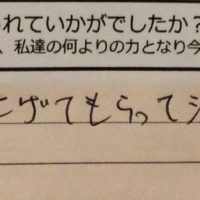 られていかがでしたか?
、私達の何よりの力となり今
げてもらってシ